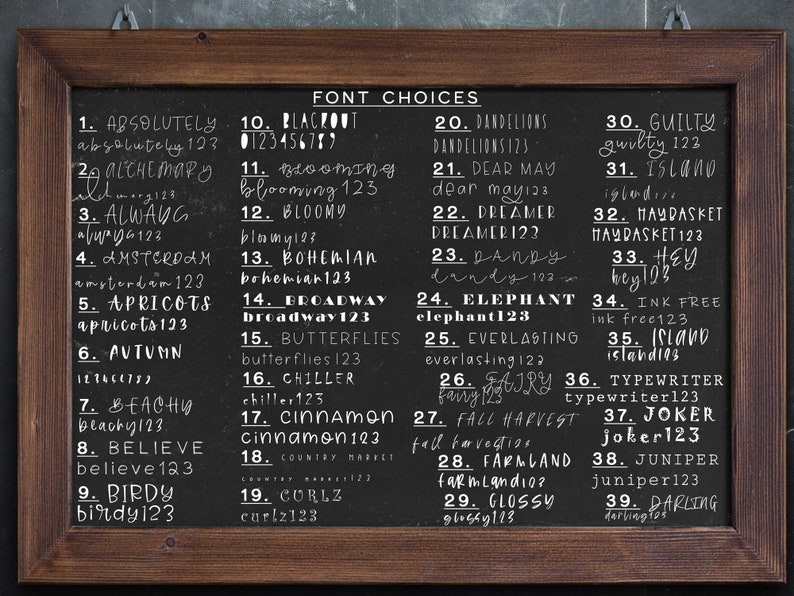 FONT CHOICES
1. ABSOLUTELY
absolutely123
2. ALCHEMARY
alchemary123
3. ALWAYS
always123
4. AMSTERDAM
amsterdam123
5. APRICOTS
apricots123
6. AUTUMN
123456789
7. BEACHY
beachy123
8. BELIEVE
believe123
9. BIRDY
birdy123
10. BLACKOUT
0123456789
11. BLOOMING
blooming123
12. BLOOMY
bloomy123
13. BOHEMIAN
bohemian123
14. BROADWAY
broadway123
15. BUTTERFLIES
butterflies123
16. CHILLER
chiller123
17. CINNAMON
cinnamon123
18. COUNTRY MARKET
COUNTRY MARKET123
19. CURLZ
curlz123
20. DANDELIONS
DANDELIONS123
21. DEAR MAY
dear may123
22. DREAMER
DREAMER123
23. DANDY
dandy123
24. ELEPHANT
elephant123
25. EVERLASTING
everlasting123
26. FAIRY
fairy123
27. FALL HARVEST
fall harvest123
28. FARMLAND
farmland123
29. GLOSSY
glossy123
30. GUILTY
guilty 123
31. ISLAND
island123
32. HAYBASKET
HAYBASKET123
33. HEY
hey123
34. INK FREE
ink free123
35. ISLAND
island123
36. TYPEWRITER
typewriter123
37. JOKER
joker123
38. JUNIPER
juniper123
39. DARLING
darling123